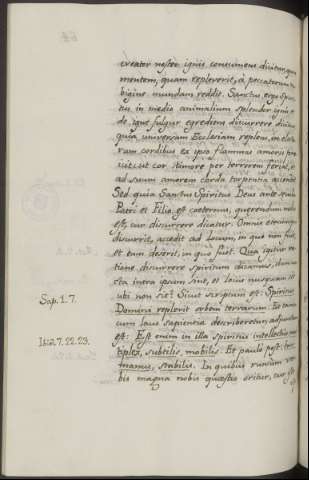 creator noster ignis consumens dicitur, quia
mentem, quam repleverit, à peccatorum ru
bigine mundam reddit. Sanctus ergo Spiri
tus in medio animalium splendor ignis, e
de igne fulgur egrediens discurrere dicitur
quia universam Ecclesiam replens, in electo
rum cordibus ex se flammas amoris pro
iicit, ut cor ... more per terrorem feriat, e
ad suum amorem corda torpentia accendat
Sed quia Sanctus Spiritus Deus ante secula
Patri et Filio est coeternus, quaerendum nobis
est, cur discurrere dicatur. Omne etenim quod
discurrit, accedit ad locum, in quo non fuit
et eum deserit, in quo fuit. Qua igitur ra
tione discurrere spiritum dicamus, dum cun
cta intra ipsum sint, et locus nusquam sit
ubi non sit? Sicut scriptum est: Spiritus
Domini replevit orbem terrarum. Et cum
cum laus sapientiae describeretur, adjunctum
est: Est enim in illa spiritus intellectus mul
tiplex, subtilis, mobilis. Et paulo post: hu
manus, stabilis. In quibus rursum ver
bis magna nobis quaestio oritur, cur is
Sap. 1. 7.
Ibid. 7. 22. 23.